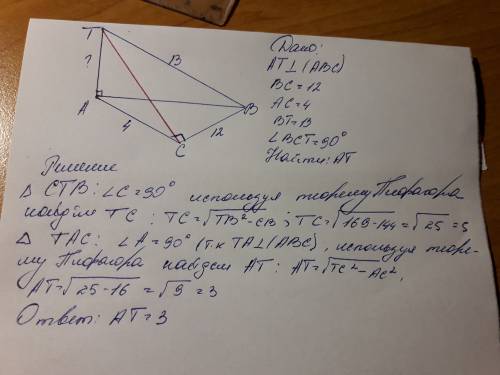 T
?
13
Дано:
AT⊥(ABC)
BC=12
AC=4
BT=13
∠BCT=90°
Найти: AT
A
B
4
12
C
Решение
△ CTB: ∠C=90° используя теорему Пифагора
найдём TC : TC=√TB²-CB ; TC=√169-144=√25=5
△ TAC: ∠A=90° (т.к TA⊥(ABC), используя теоре-
му Пифагора найдем AT: AT=√TC²-AC²,
AT=√25-16 =√9=3
Ответ: AT=3